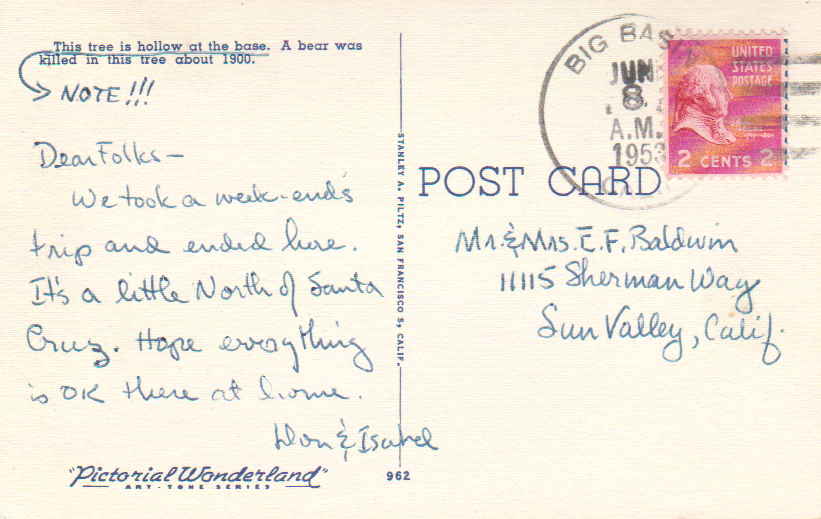 This tree is hollow at the base. A bear was
killed in this tree about 1900.
NOTE!!!
Dear Folks —
We took a week-end's
trip and ended here.
It's a little North of Santa
Cruz. Hope everything
is OK there at home.
Don & Isabel
"Pictorial Wonderland"
ART-TONE SERIES
STANLEY A. PILTZ, SAN FRANCISCO 5, CALIF.
962
POST CARD
BIG BASIN
JUN
8
A.M.
1953
UNITED
STATES
POSTAGE
2 CENTS 2
Mr. & Mrs. E. F. Baldwin
11115 Sherman Way
Sun Valley, Calif.